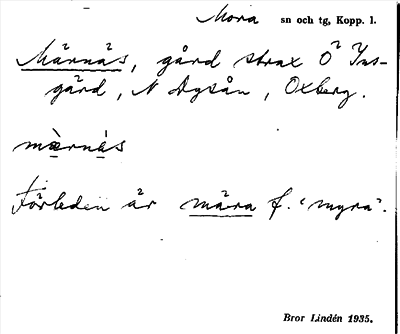 Mora sn och tg, Kopp. l.
Märnäs, gård strax Ö Ins-
gärd, N Dysån, Oxberg.
mæ̀rnás
Förleden är mära f. 'myra'.
Bror Lindén 1935.